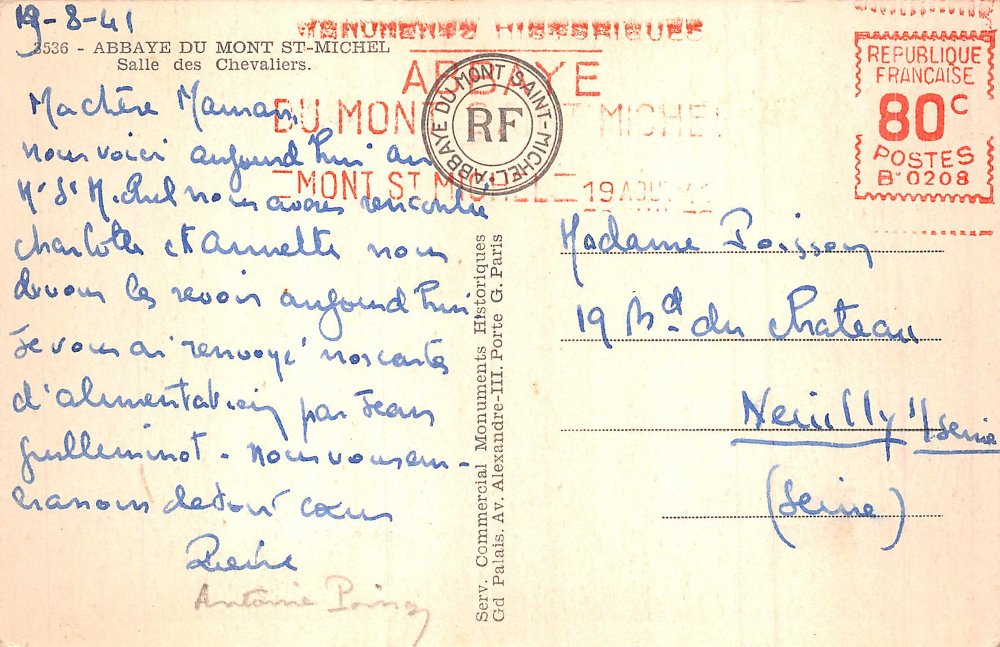 19-8-41
3536 - ABBAYE DU MONT ST-MICHEL
Salle des Chevaliers.
Ma chère Maman,
nous voici aujourd'hui au
Mt St Michel nous avons rencontré
Charlotte et Annette nous
devons les revoir aujourd'hui.
Je vous ai renvoyé nos cartes
d'alimentation par Jean
Guilleminot - Nous vous em-
brassons de tout cœur
Antoine
MONUMENTS HISTORIQUES
ABBAYE
DU MONT SAINT MICHEL
MONT ST MICHEL 19 AOUT 41
ABBAYE DU MONT SAINT-MICHEL
RF
REPUBLIQUE
FRANÇAISE
80c
POSTES
B.0208
Serv. Commercial Monuments Historiques
Gd Palais. Av. Alexandre-III. Porte G. Paris
Madame Poisson
19 Bd. du Chateau
Neuilly s/Seine
(Seine)